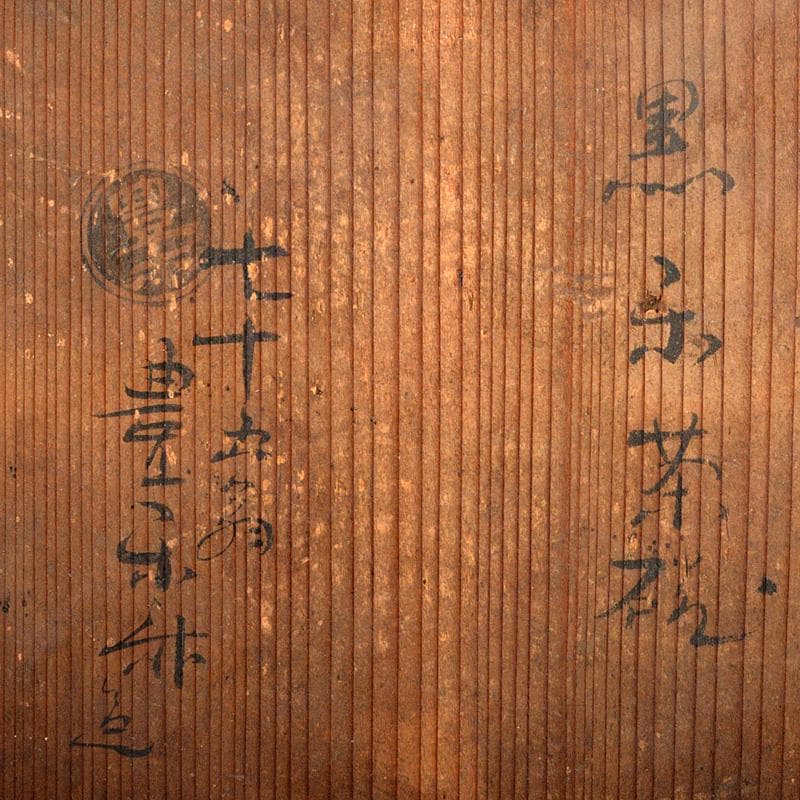 黒楽茶碗
七十五翁
豊楽作造